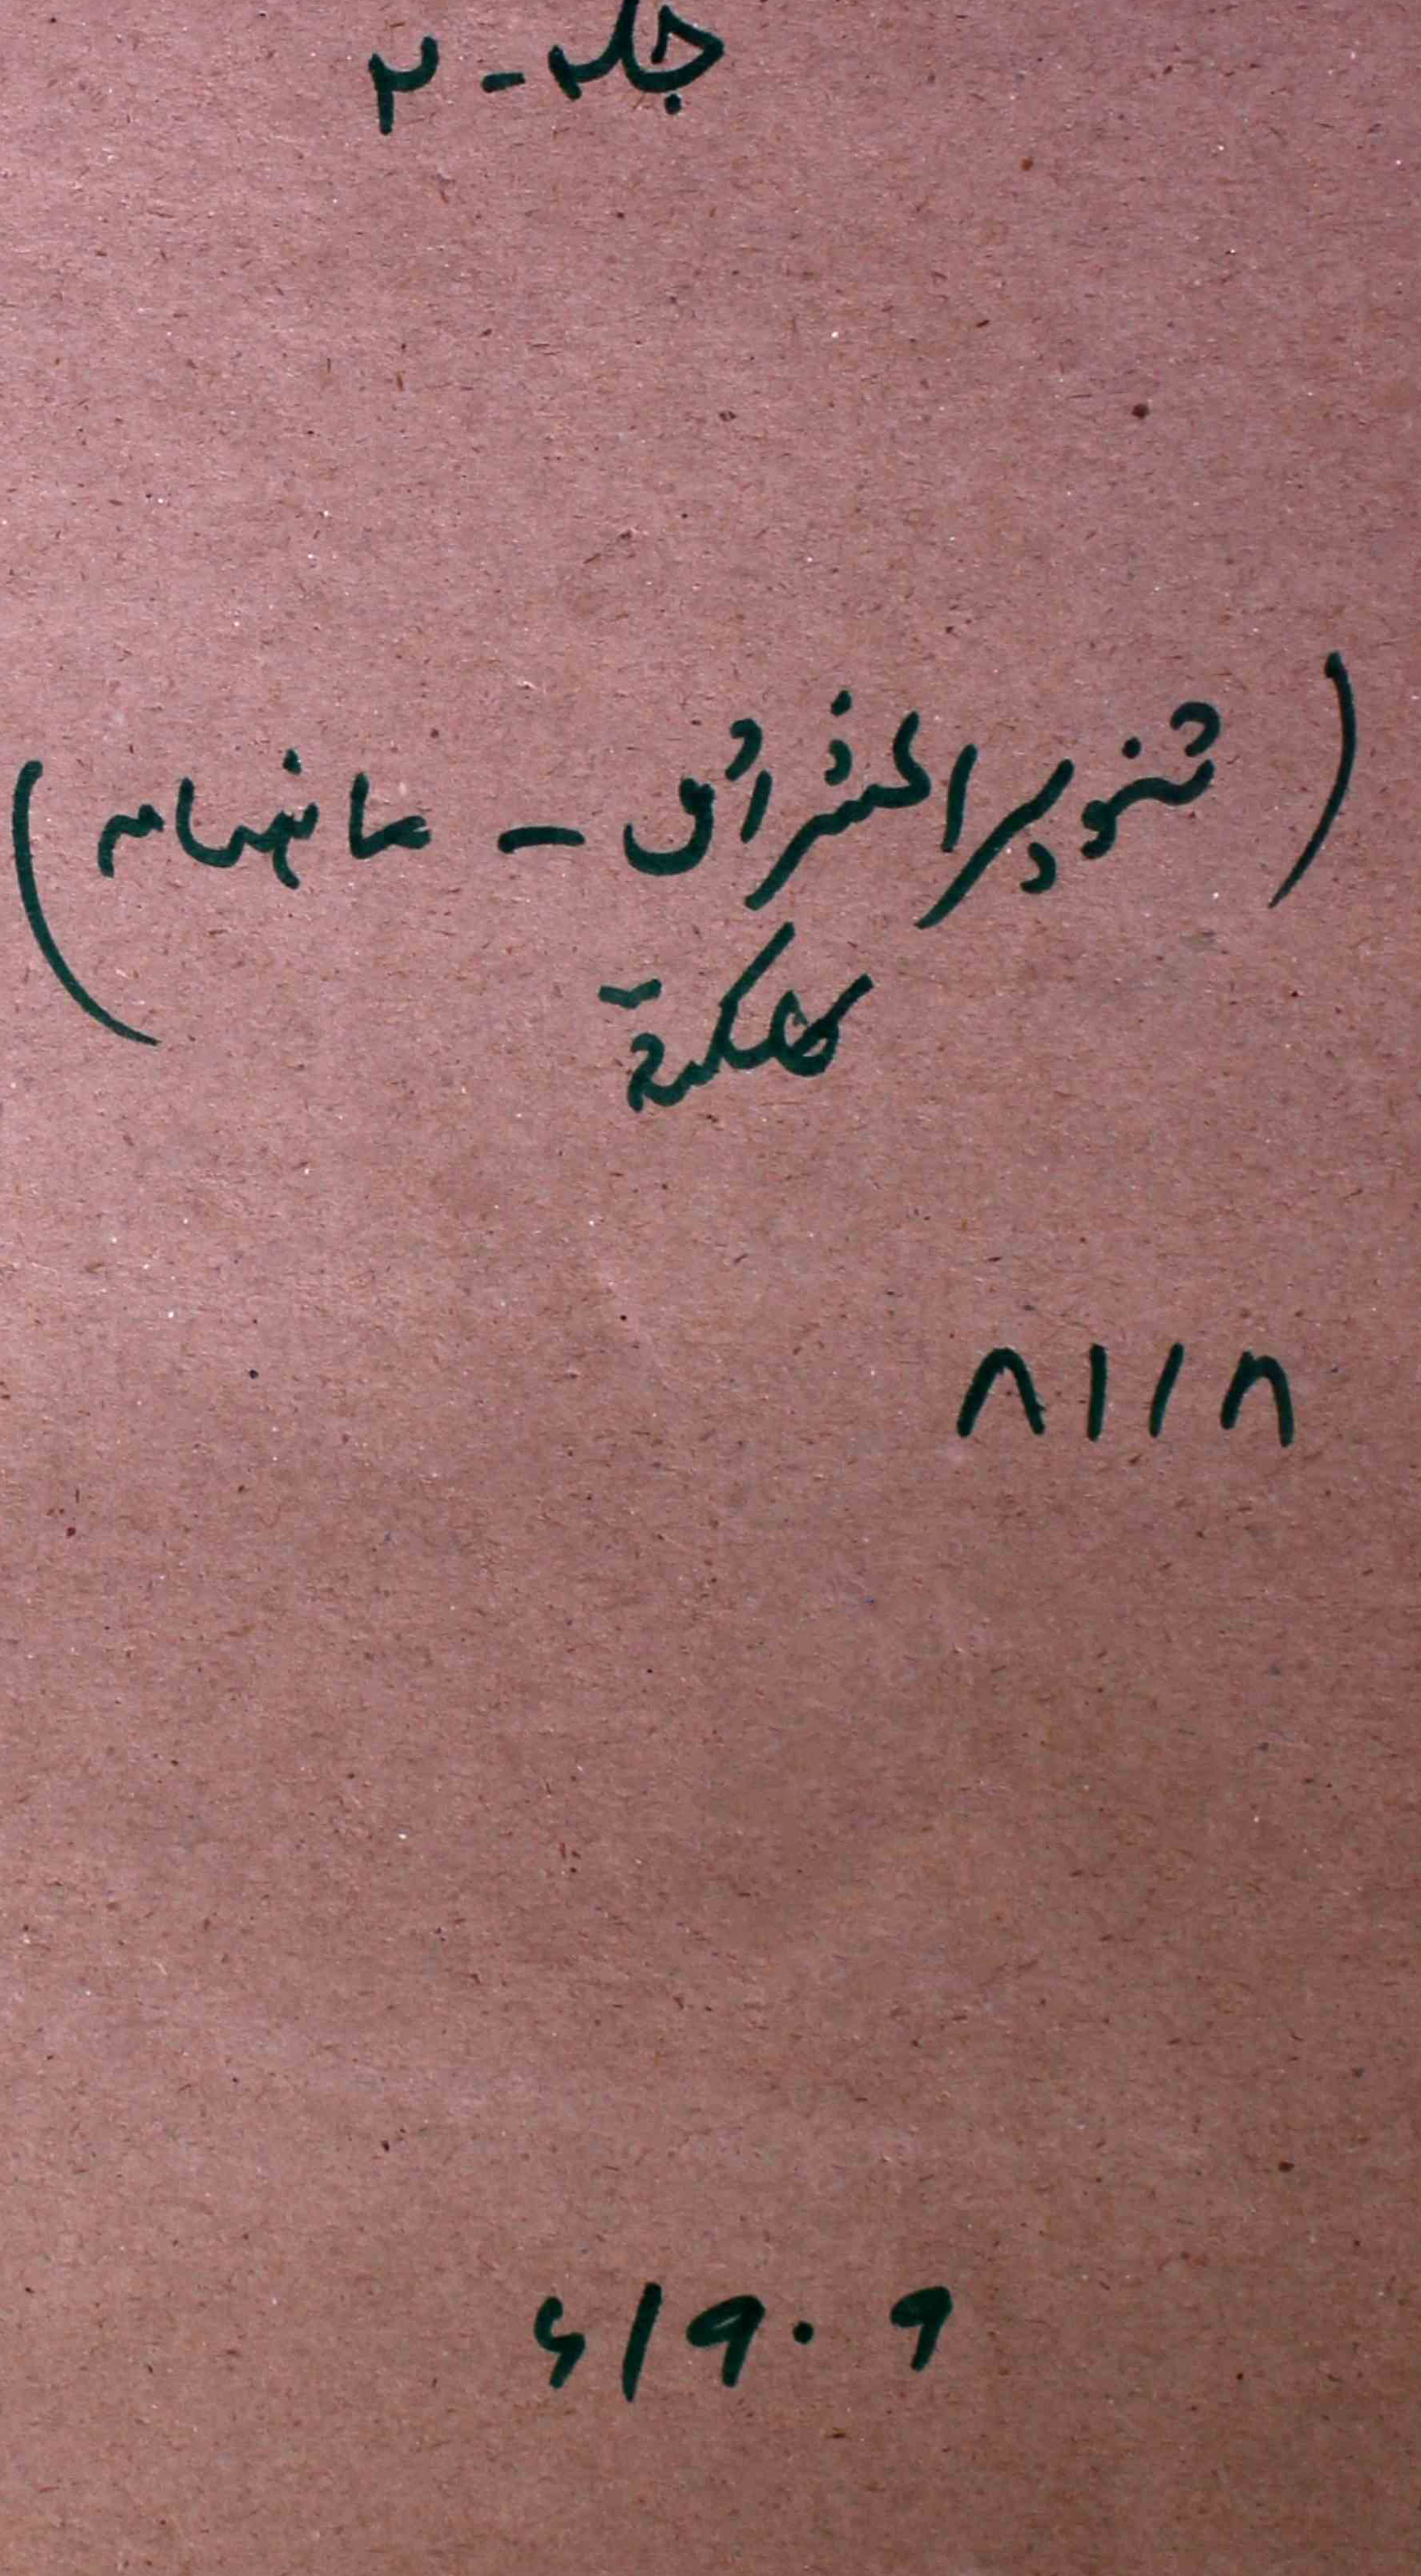 جلد - ۲
(تنویر الشرق - ماہنامہ)
کلکتہ
۸۱۱۸
۱۹۰۹ء